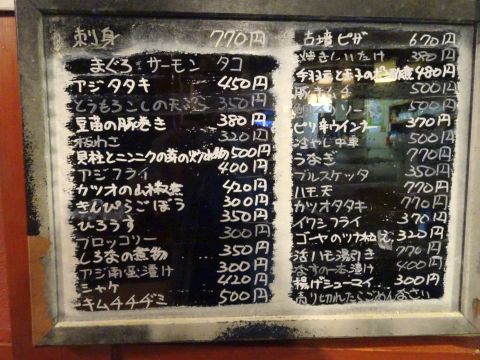 刺身 770円
まぐろ サーモン タコ
アジタタキ 450円
とうもろこしの天ぷら 350円
豆苗の豚巻き 380円
板わさ 320円
貝柱とニンニクの芽の炒め物 500円
アジフライ 400円
カツオの山椒煮 420円
きんぴらごぼう 300円
ひろうす 350円
ブロッコリー 300円
しろ菜の煮物 350円
アジ南蛮漬け 300円
シャケ 420円
キムチチヂミ 500円
古墳ピザ 670円
焼きしいたけ 380円
手羽元と玉子の 煮 480円
豚キムチ 500円
500円
ピリ辛ウインナー 370円
冷やし中華 500円
うなぎ 770円
ブルスケッタ 350円
ハモ天 770円
カツオタタキ 770円
イワシフライ 370円
ゴーヤのツナ和え 320円
活ハモ湯引き 770円
なすの一本漬け 400円
揚げシューマイ 300円
売り切れたらごめんなさい